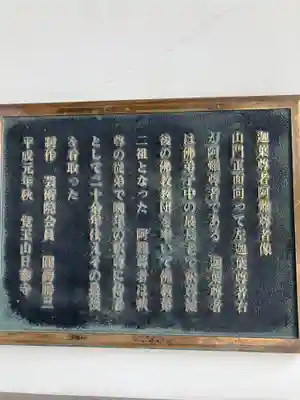 迦葉尊者阿難尊者像
山門正面向って左迦葉尊者右
が阿難尊者である 迦葉尊者
は佛弟子中の最長老で釈尊滅
後の佛教教団
二祖となった 阿難尊者は釈
尊の従弟で
として二十余年
を看取った
制作 芸術院会員 圓鍔勝三
平成元年秋 覚王山日泰寺